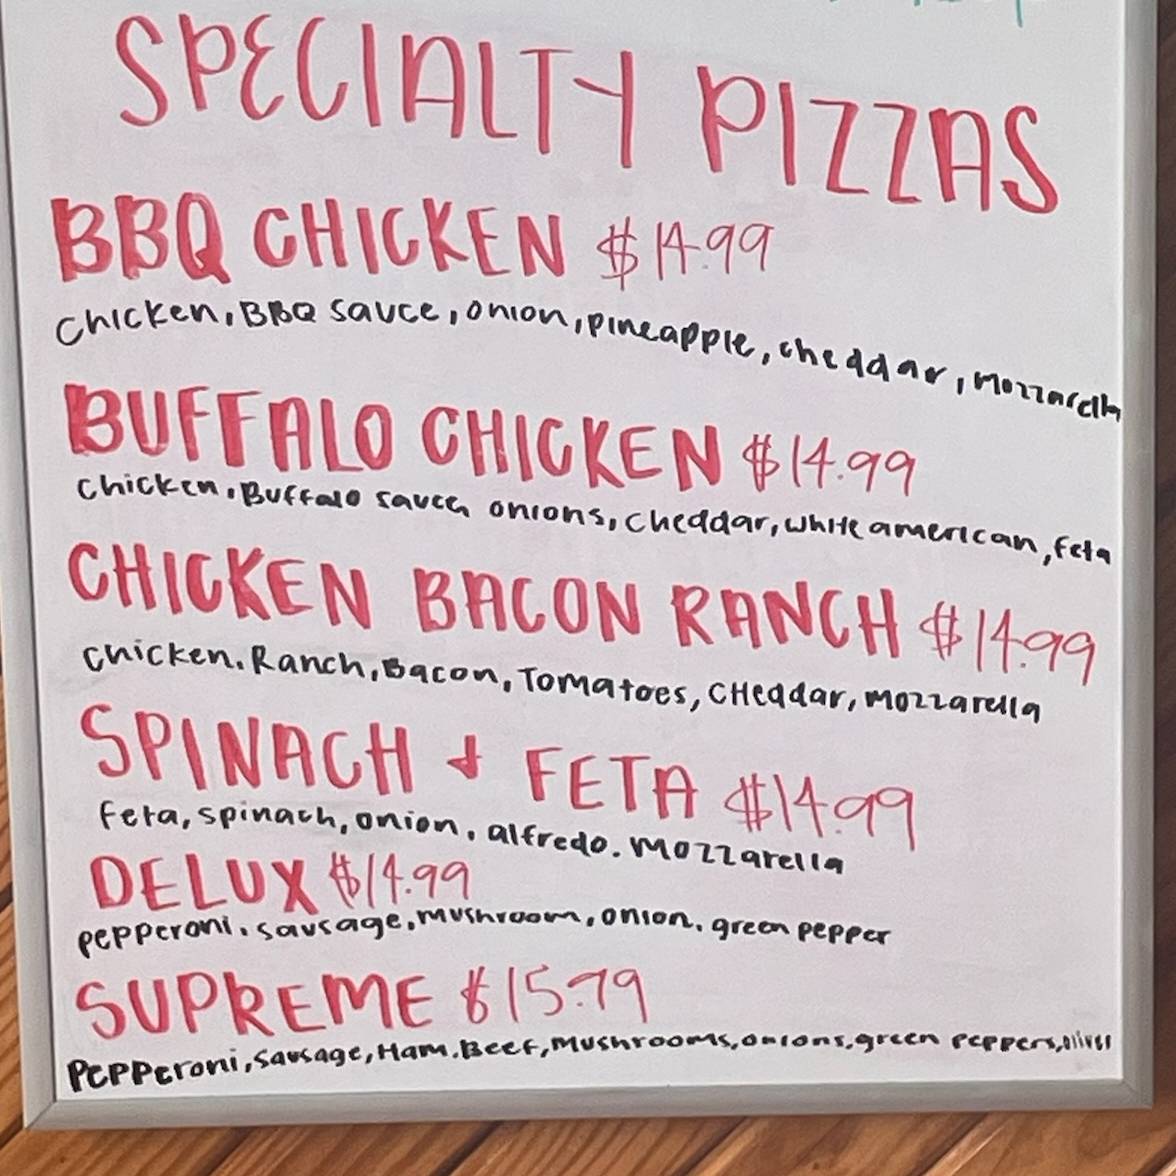 SPECIALTY PIZZAS
BBQ CHICKEN $14.99
Chicken, BBQ sauce, onion, pineapple, cheddar, mozzarella
BUFFALO CHICKEN $14.99
Chicken, Buffalo sauce, onions, cheddar, white american, feta
CHICKEN BACON RANCH $14.99
Chicken, Ranch, Bacon, Tomatoes, CHeddar, mozzarella
SPINACH + FETA $14.99
feta, spinach, onion, alfredo. mozzarella
DELUX $14.99
pepperoni, sausage, mushroom, onion, green pepper
SUPREME $15.79
Pepperoni, sausage, Ham, Beef, Mushrooms, onions, green peppers, olives